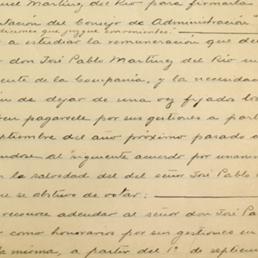 uel Martinez del Rio para firmarla
tación del Consejo de Administración
diciones que juzgue convenientes.
a estudiar la remuneración que de
r don José Pablo Martinez del Rio
ente de la Compañia, y la necesidad
in de dejar de una vez fijados los
ben pagarsele por sus gestiones a parti
eptiembre del año próximo pasado
ndose el siguiente acuerdo por unanim
n la salvedad del del señor José Pablo
ue se abstuvo de votar:
reconoce adeudar al señor don José Pa
como honorarios por sus gestiones en
la misma, a partir del 1º de septie